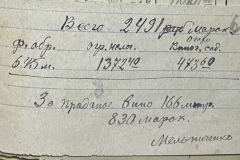 Всего 2491 руб Марок
Ф. обр. огр. нала.
6.45м. 1372 40 473 60
За проданое вино 166 литр.
830 марок.
Мельниченко